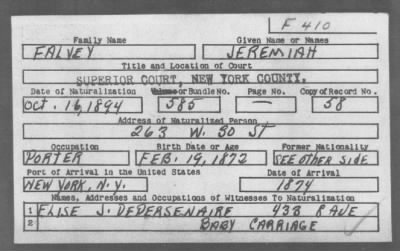 F 410
Family Name Given Name or Names
FALVEY JEREMIAH
Title and Location of Court
SUPERIOR COURT, NEW YORK COUNTY.
Date of Naturalization Volume or Bundle No. Page No. Copy of Record No.
Oct. 16, 1894 585 — 58
Address of Naturalized Person
263 W. 30 ST
Occupation Birth Date or Age Former Nationality
PORTER FEB. 19, 1872 SEE OTHER SIDE
Port of Arrival in the United States Date of Arrival
NEW YORK, N.Y. 1874
Names, Addresses and Occupations of Witnesses To Naturalization
1 ELISE J. DEDERSENAIRE 433 8 AVE
2 BABY CARRIAGE